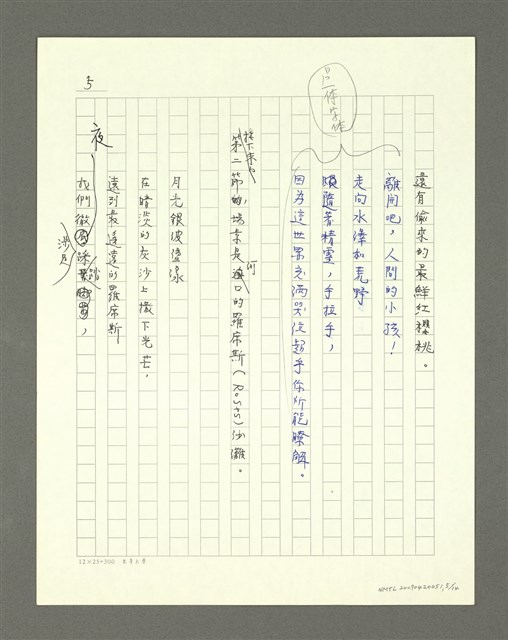 5
另一種字体
還有偷來的最鮮紅櫻桃。
離開吧，人間的小孩！
走向水澤和荒野
跟隨著精靈，手拉手，
因為這世界充滿哭泣超乎你所能瞭解。
接下來
第二節的場景是 河口的羅席斯（Rosses）沙灘。
月光銀波盪漾
在暗淡的灰沙上撥下光芒，
遠到最遙遠的羅席斯
夜
我們徹 踩踏 ，
12×25=300 東吳大學
NMTL 20090420051, 5/12